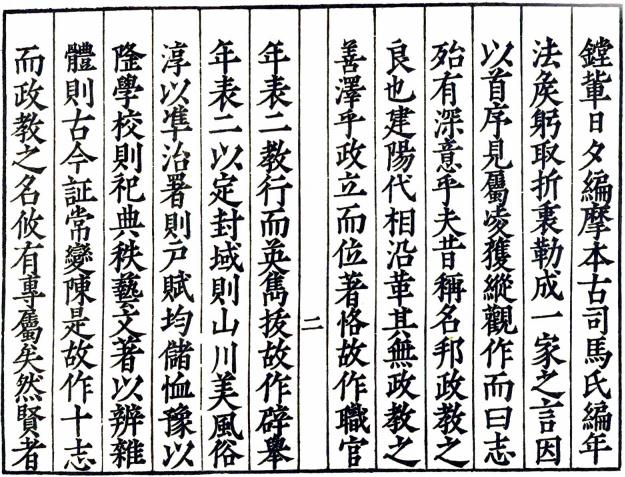 鏜軰日夕編摩本古司馬氏編年
法矦躬取折衷勒成一家之言因
以首序見屬凌獲縱觀作而曰志
殆有深意乎夫昔稱名邦政教之
良也建陽代相沿革其無政教之
善澤乎政立而位著恪故作職官
二
年表二教行而英雋拔故作辟舉
年表二以定封域則山川美風俗
淳以凖治署則戸賦均儲恤豫以
隆學校則祀典秩藝文著以辨雜
體則古今証常變陳是故作十志
而政教之名攸有專屬矣然賢者